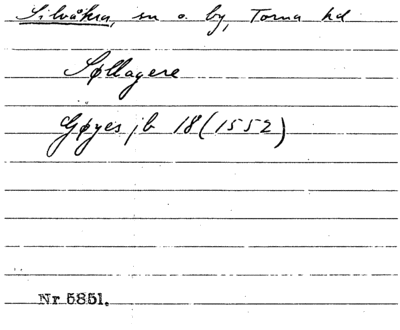 Silvåkra, sn o. by, Torna hd
Søllagere
Gøyes jb 18 (1552)
Nr 5851.